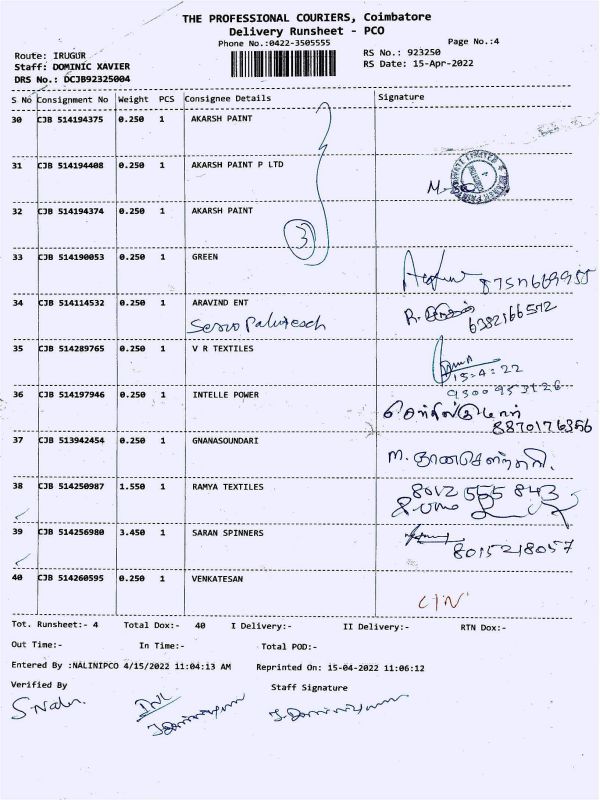 THE PROFESSIONAL COURIERS, Coimbatore
Delivery Runsheet - PCO
Phone No.:0422-3505555
Page No.:4
Route: IRUGUR
RS No.: 923250
Staff: DOMINIC XAVIER
RS Date: 15-Apr-2022
DRS No.: DCJB92325004
S No Consignment No Weight PCS Consignee Details Signature
30 CJB 514194375 0.250 1 AKARSH PAINT
31 CJB 514194408 0.250 1 AKARSH PAINT P LTD
32 CJB 514194374 0.250 1 AKARSH PAINT
3
33 CJB 514190053 0.250 1 GREEN
34 CJB 514114532 0.250 1 ARAVIND ENT
6382166512
35 CJB 514289765 0.250 1 V R TEXTILES
15-4-22
9500953126
36 CJB 514197946 0.250 1 INTELLE POWER
செந்தில்குமார்
8870176356
37 CJB 513942454 0.250 1 GNANASOUNDARI
M. ஞானசௌந்தரி.
38 CJB 514250987 1.550 1 RAMYA TEXTILES
8012 555 843
39 CJB 514256980 3.450 1 SARAN SPINNERS
8015218057
40 CJB 514260595 0.250 1 VENKATESAN
Tot. Runsheet:- 4 Total Dox:- 40 I Delivery:- II Delivery:- RTN Dox:-
Out Time:- In Time:- Total POD:-
Entered By :NALINIPCO 4/15/2022 11:04:13 AM Reprinted On: 15-04-2022 11:06:12
Verified By Staff Signature